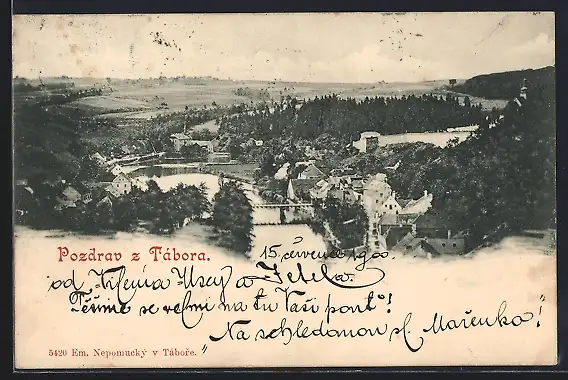 Pozdrav z Tábora.
15. července 1900
od
a
Těšíme se velmi na tu Vaši pouť"!
„Na schledanou sl. Mařenko!
5420 Em. Nepomucký v Táboře.